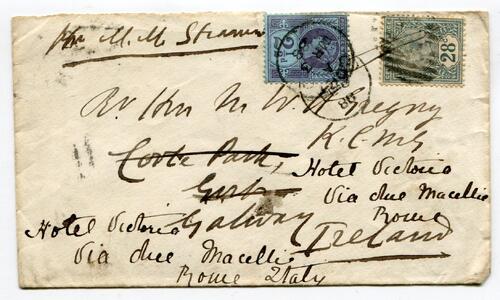 per M.M Steamer
28
Rt. Hon W. W. Gregory
K.C.M.G
Coole Park,
Gort
Galway
Ireland
Hotel Victoria
Via due Macellie
Rome
Hotel Victoria
Via due Macellie
Rome Italy